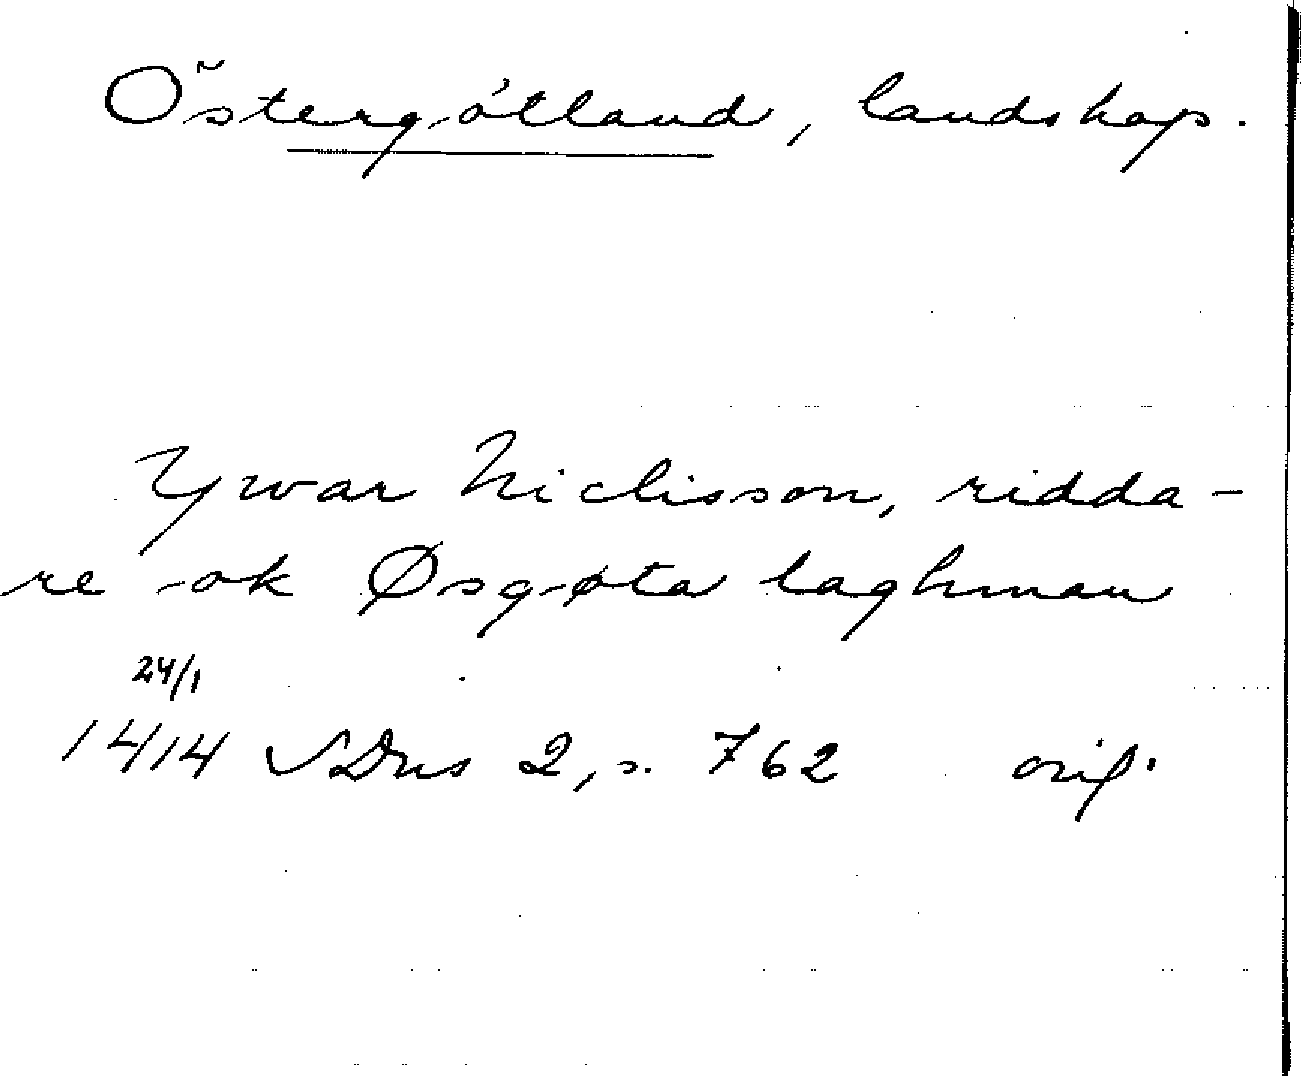 Östergötland, landskap.
Ywar Niclisson, ridda-
re ok Øsgøta laghman
24/1
1414 SDns 2, s. 762 orig.